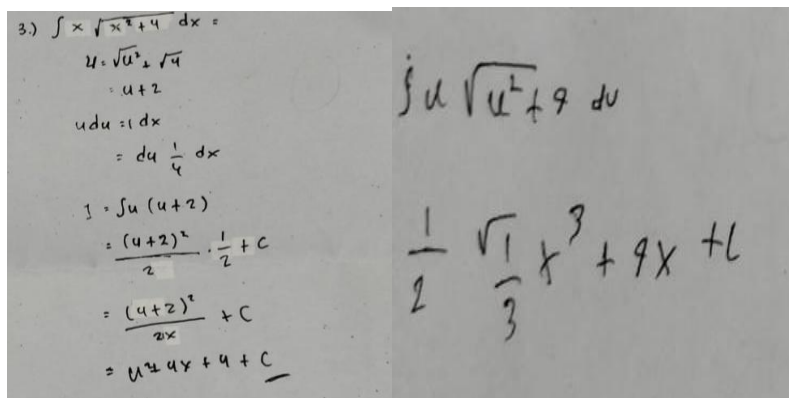 3.) ∫ x √(x² + 4) dx =
u = √u² + √4
= u + 2
u du = 1 dx
= du 1/4 dx
I = ∫u (u + 2)
= (u+2)²/2 · 1/2 + C
= (u+2)²/2x + C
= u² + 4x + 4 + C
∫ u √(u² + 9) du
1/2 √(1/3) x³ + 9x + C